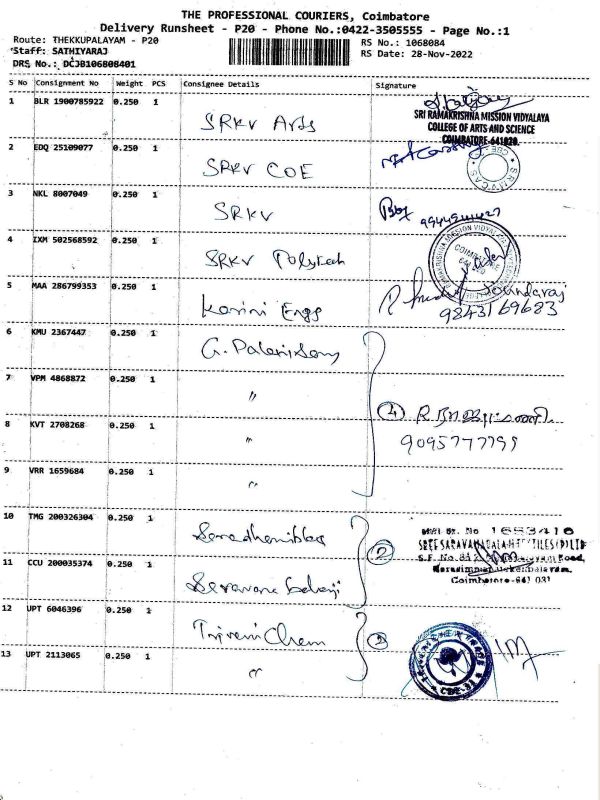 THE PROFESSIONAL COURIERS, Coimbatore
Delivery Runsheet - P20 - Phone No.:0422-3505555 - Page No.:1
Route: THEKKUPALAYAM - P20
RS No.: 1068084
Staff: SATHIYARAJ
RS Date: 28-Nov-2022
DRS No.: DCJB106808401
S No Consignment No Weight PCS Consignee Details Signature
1 BLR 1900785922 0.250 1 SRKV Arts
SRI RAMAKRISHNA MISSION VIDYALAYA
COLLEGE OF ARTS AND SCIENCE
COIMBATORE-641020.
2 EDQ 25109077 0.250 1 SRKV COE
3 NKL 8007049 0.250 1 SRKV
4 IXM 502568592 0.250 1 SRKV Polytech
COIMBATORE
641 020
5 MAA 286799353 0.250 1 Karini Engg
9843169683
6 KMU 2367447 0.250 1 G. Palanisamy
7 VPM 4868872 0.250 1 "
④ R
8 KVT 2708268 0.250 1 "
9095777799
9 VRR 1659684 0.250 1 "
10 TMG 200326304 0.250 1
② SREE SARAVANABALAJI TEXTILES (P) LTD
11 CCU 200035374 0.250 1 Saravana Balaji
Coimbatore-641 031
12 UPT 6046396 0.250 1 Triveni Chem
13 UPT 2113065 0.250 1 "